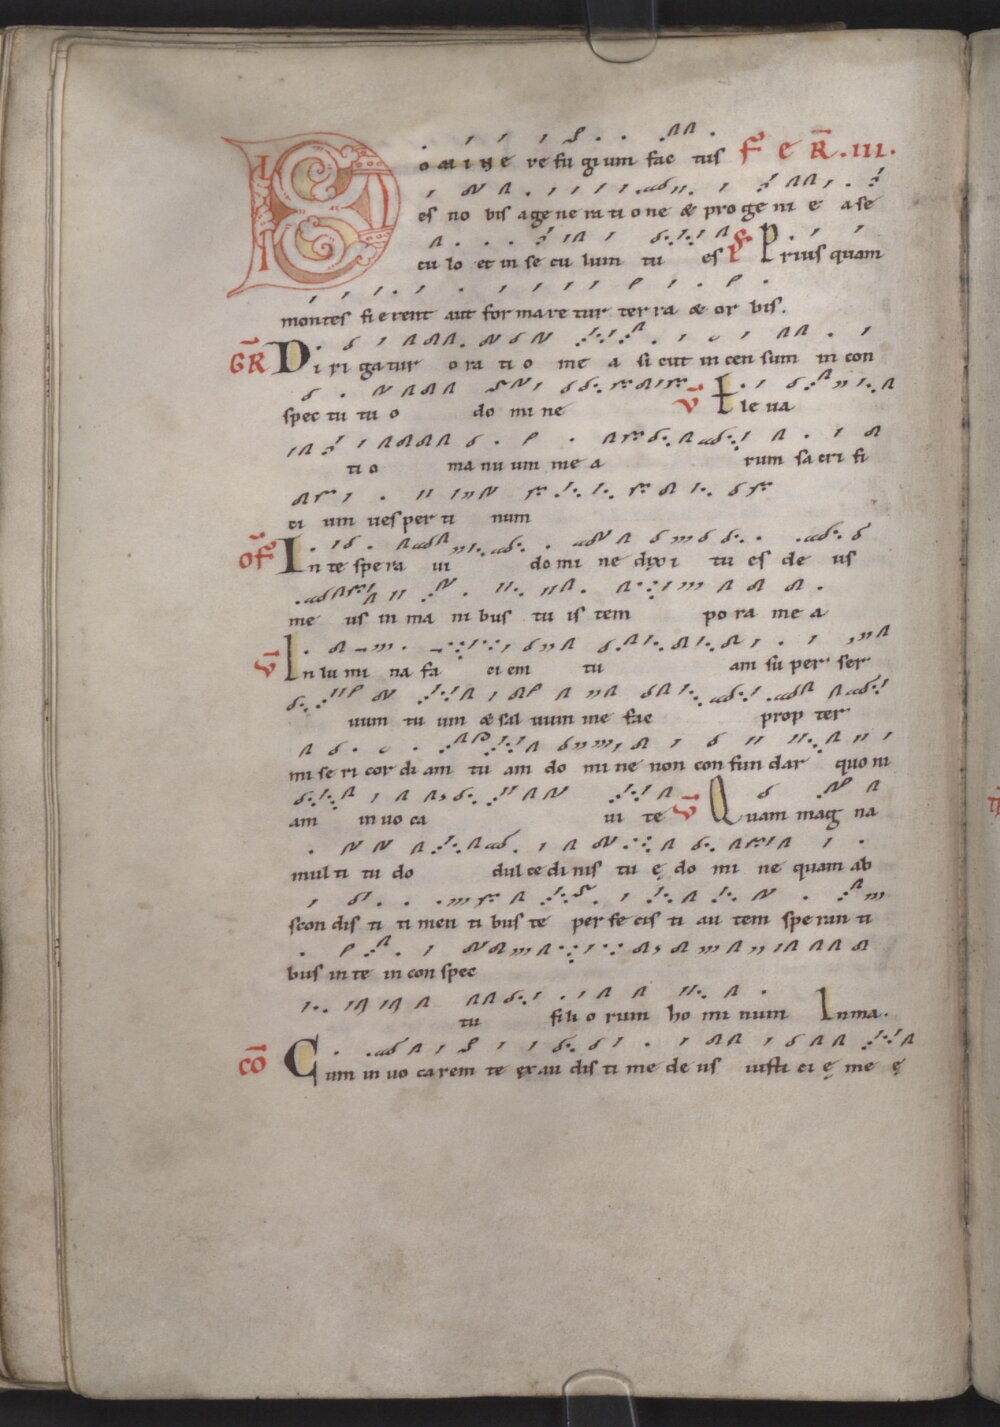 Domine re fu gi um fac tus FER̄.III.
es no bis a ge ne ra ti o ne & pro ge ni e a se
cu lo et in se cu lum tu es Ps Prius quam
montes fi e rent aut for mare tur ter ra & or bis.
GR̄ Di ri ga tur o ra ti o me a si cut in cen sum in con
spec tu tu o do mi ne V̄ E le ua
ti o ma nu um me a rum sa cri fi
ci um ues per ti num
OF̄ In te spe ra ui do mi ne dixi tu es de us
me us in ma ni bus tu is tem po ra me a
V̄ In lu mi na fa ci em tu am su per ser
uum tu um & sal uum me fac prop ter
mi se ri cor di am tu am do mi ne non con fun dar quo ni
am in uo ca ui te V̄ Quam mag na
mul ti tu do dul ce di nis tu ę do mi ne quam ab
scon dis ti ti men ti bus te per fe cis ti au tem spe ran ti
bus in te in con spec
tu fili o rum ho mi num In ma.
CŌ Cum in uo ca rem te ex au dis ti me de us iusti ci ę me ę